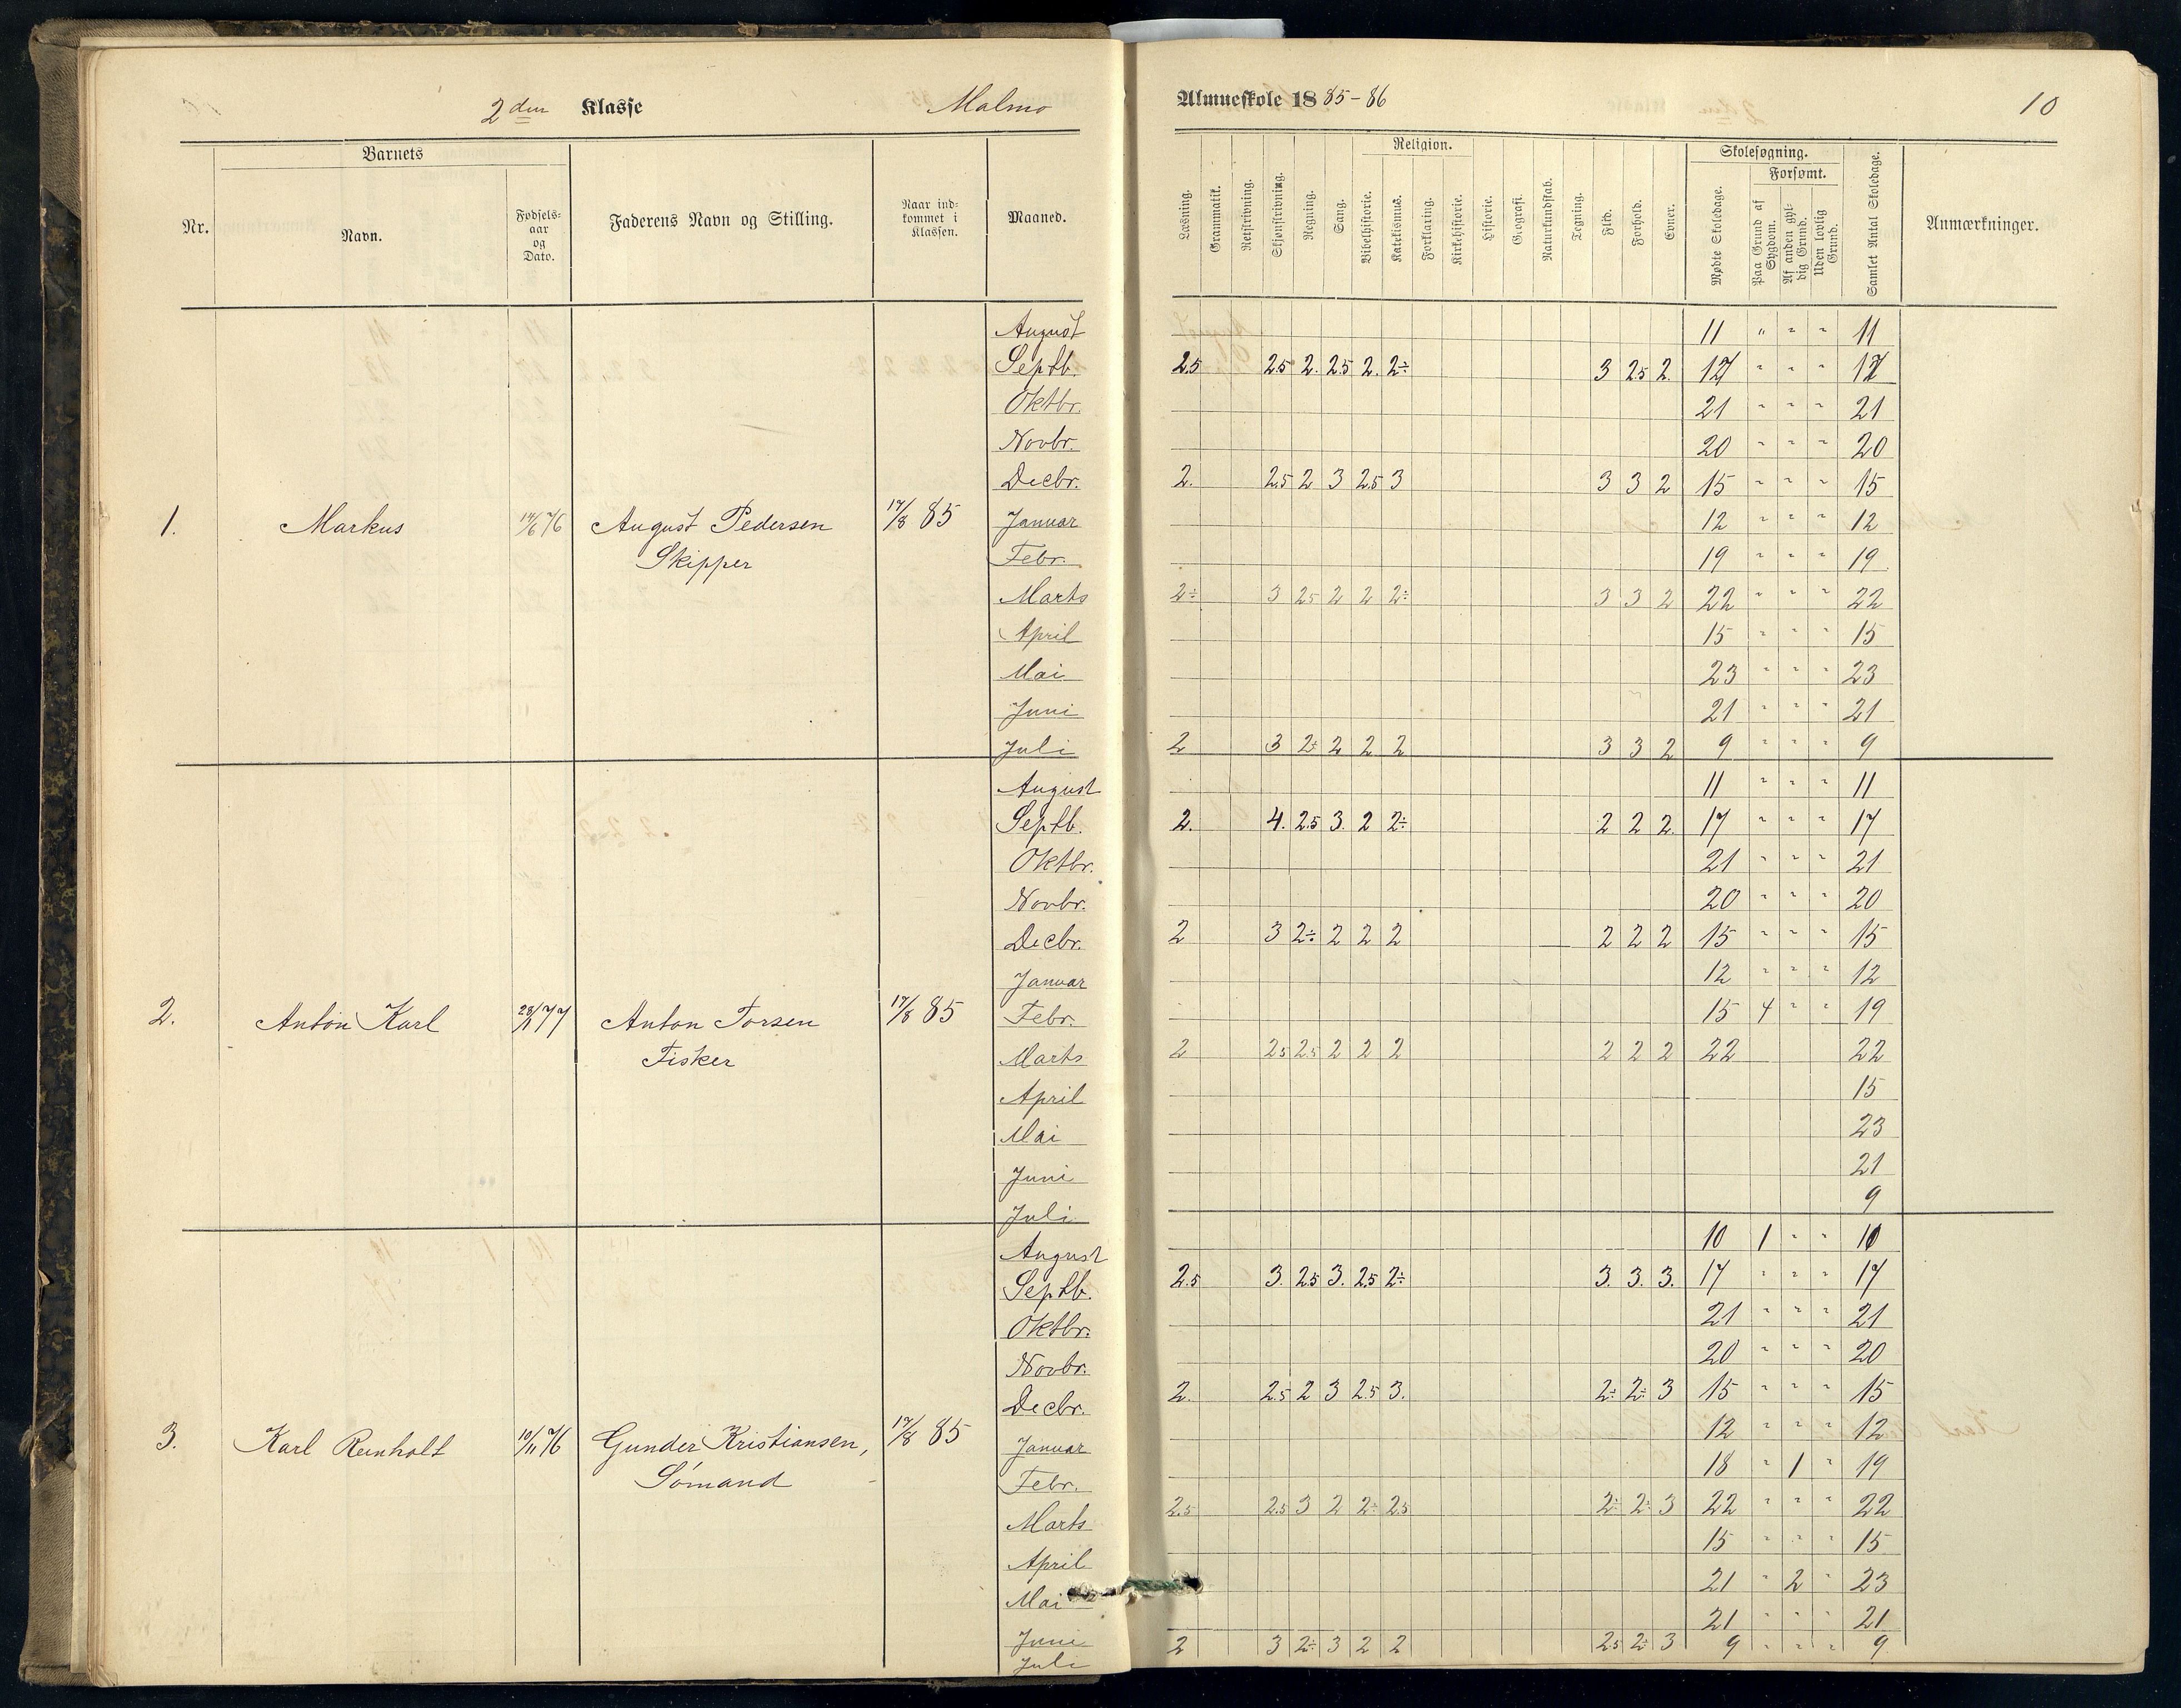 2den Klasse Malmø Almueskole 1885-86 10
Nr. Barnets Faderens Navn og Stilling. Naar ind- kommet i Klassen. Maaned.
Navn. Fødsels- aar og Dato.
Læsning. Grammatik. Retskrivning. Skjønskrivning. Regning. Sang. Religion. Bibelhistorie. Katekismus. Forklaring. Kirkehistorie. Historie. Geografi. Naturkundskab. Tegning. Flid. Forhold. Evner. Skolesøgning. Mødte Skoledage. Forsømt. Paa Grund af Sygdom. Af anden gyl- dig Grund. Uden lovlig Grund. Samlet Antal Skoledage. Anmærkninger.
August 11 " " " 11
Septb. 2.5 2.5 2. 2.5 2. 2÷ 3 2.5 2. 17 " " " 17
Oktbr. 21 " " " 21
Novbr. 20 " " " 20
Decbr. 2. 2.5 2 3 2.5 3 3 3 2 15 " " " 15
1. Markus 14/6 76 August Pedersen 17/8 85 Januar 12 " " " 12
Skipper Febr. 19 " " " 19
Marts 2÷ 3 2.5 2 2 2÷ 3 3 2 22 " " " 22
April 15 " " " 15
Mai 23 " " " 23
Juni 21 " " " 21
Juli 2 3 2÷ 2 2 2 3 3 2 9 " " " 9
August 11 " " " 11
Septb. 2. 4. 2.5 3. 2 2÷ 2 2 2. 17 " " " 17
Oktbr. 21 " " " 21
Novbr. 20 " " " 20
Decbr. 2 3 2÷ 2 2 2 2 2 2 15 " " " 15
Januar 12 " " " 12
2. Anton Karl 77 Anton Torsen 17/8 85 Febr. 15 4 " " 19
Fisker Marts 2 2.5 2.5 2 2 2 2 2 2 22 22
April 15
Mai 23
Juni 21
Juli 9
August 10 1 " " 10
Septb. 2.5 3. 2.5 3. 2.5 2÷ 3. 3. 3. 17 " " " 17
Oktbr. 21 " " " 21
Novbr. 20 " " " 20
Decbr. 2. 2.5 2 3 2.5 3. 2÷ 2÷ 3 15 " " " 15
3. Karl Reinholt 10/11 76 Gunder Kristiansen, 17/8 85 Januar 12 " " " 12
Sømand Febr. 18 " 1 " 19
Marts 2.5 2.5 3 2 2÷ 2.5 2÷ 2÷ 3 22 " " " 22
April 15 " " " 15
Mai 21 " 2 " 23
Juni 21 " " " 21
Juli 2 3 2÷ 3 2 2 2.5 2÷ 3 9 " " " 9